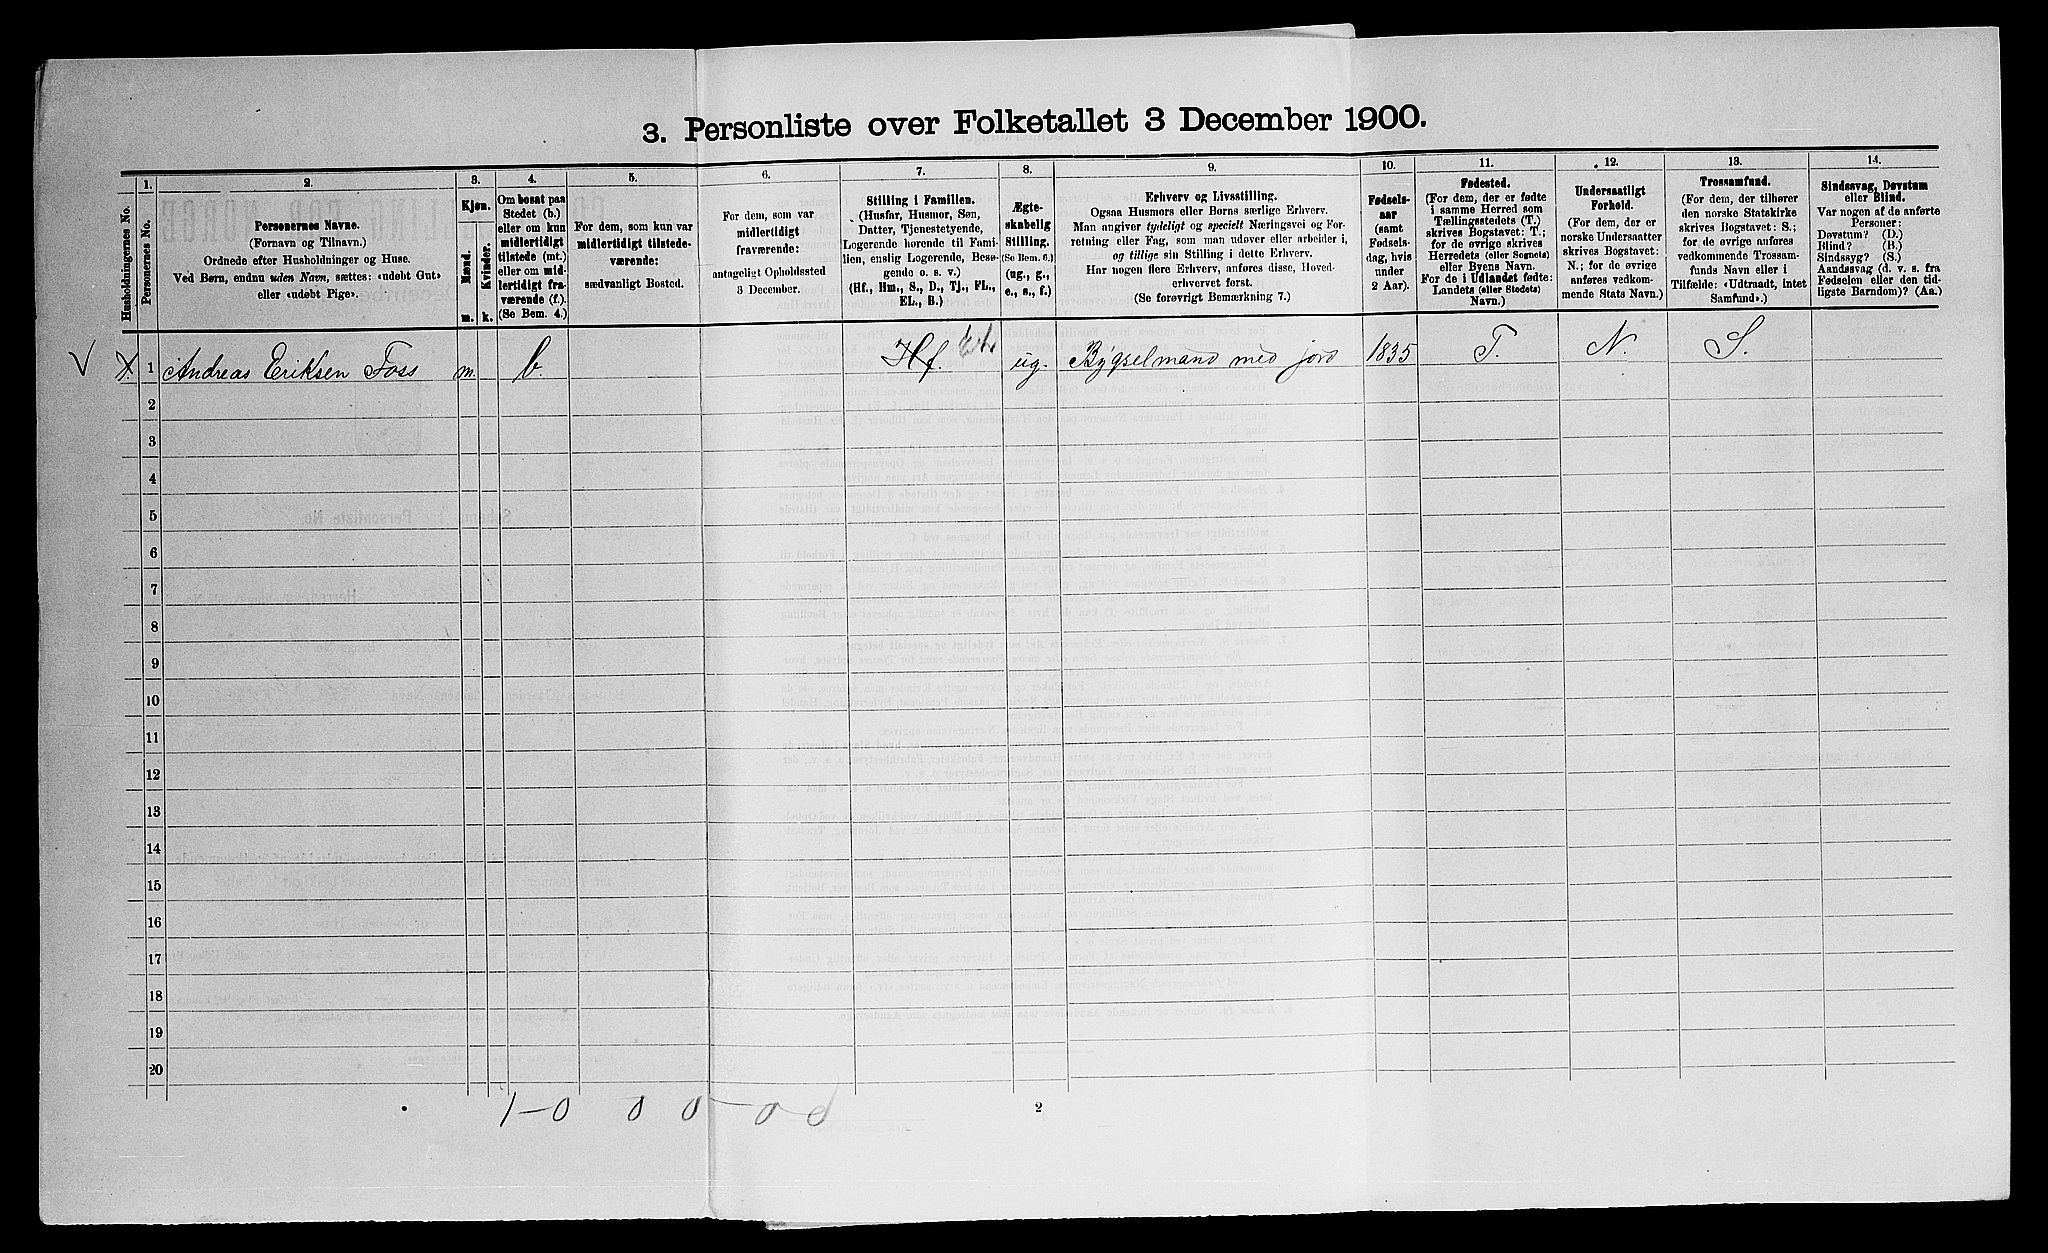 3. Personliste over Folketallet 3 December 1900.
Husholdningernes No.
1.
Personernes No.
2.
Personernes Navne.
(Fornavn og Tilnavn.)
Ordnede efter Husholdninger og Huse.
Ved Børn, endnu uden Navn, sættes: «udøbt Gut»
eller «udøbt Pige».
3.
Kjøn.
Mænd.
Kvinder.
m.
k.
4.
Om bosat paa
Stedet (b.)
eller om kun
midlertidigt
tilstede (mt.)
eller om mid-
lertidigt fra-
værende (f.).
(Se Bem. 4.)
5.
For dem, som kun var
midlertidigt tilstede-
værende:
sædvanligt Bosted.
6.
For dem, som var
midlertidigt
fraværende:
antageligt Opholdssted
3 December.
7.
Stilling i Familien.
(Husfar, Husmor, Søn,
Datter, Tjenestetyende,
Logerende hørende til Fami-
lien, enslig Logerende, Besø-
gende o. s. v.)
(Hf., Hm., S., D., Tj., FL.,
EL., B.)
8.
Ægte-
skabelig
Stilling.
(Se Bem. 6.)
(ug., g.,
e., s., f.)
9.
Erhverv og Livsstilling.
Ogsaa Husmors eller Børns særlige Erhverv.
Man angiver tydeligt og specielt Næringsvei og For-
retning eller Fag, som man udøver eller arbeider i,
og tillige sin Stilling i dette Erhverv.
Har nogen flere Erhverv, anføres disse, Hoved-
erhvervet først.
(Se forøvrigt Bemærkning 7.)
10.
Fødsels-
aar
(samt
Fødsels-
dag, hvis
under
2 Aar).
11.
Fødested.
(For dem, der er fødte
i samme Herred som
Tællingsstedets (T.)
skrives Bogstavet: T.;
for de øvrige skrives
Herredets (eller Sognets)
eller Byens Navn.
For de i Udlandet fødte:
Landets (eller Stedets)
Navn.)
12.
Undersaatligt
Forhold.
(For dem, der er
norske Undersaatter
skrives Bogstavet:
N.; for de øvrige
anføres vedkom-
mende Stats Navn.)
13.
Trossamfund.
(For dem, der tilhører
den norske Statskirke
skrives Bogstavet: S.;
for de øvrige anføres
vedkommende Trossam-
funds Navn eller i
Tilfælde: «Udtraadt, intet
Samfund».)
14.
Sindssvag, Døvstum
eller Blind.
Var nogen af de anførte
Personer:
Døvstum? (D.)
Blind? (B.)
Sindssyg? (S.)
Aandssvag (d. v. s. fra
Fødselen eller den tid-
ligste Barndom)? (Aa.)
V X. 1 Andreas Eriksen Foss m. b. Hf. ug. Bygselmand med jord 1835 T. N. S.
2
3
4
5
6
7
8
9
10
11
12
13
14
15
16
17
18
19
20
1-0 0 0-0 0
2